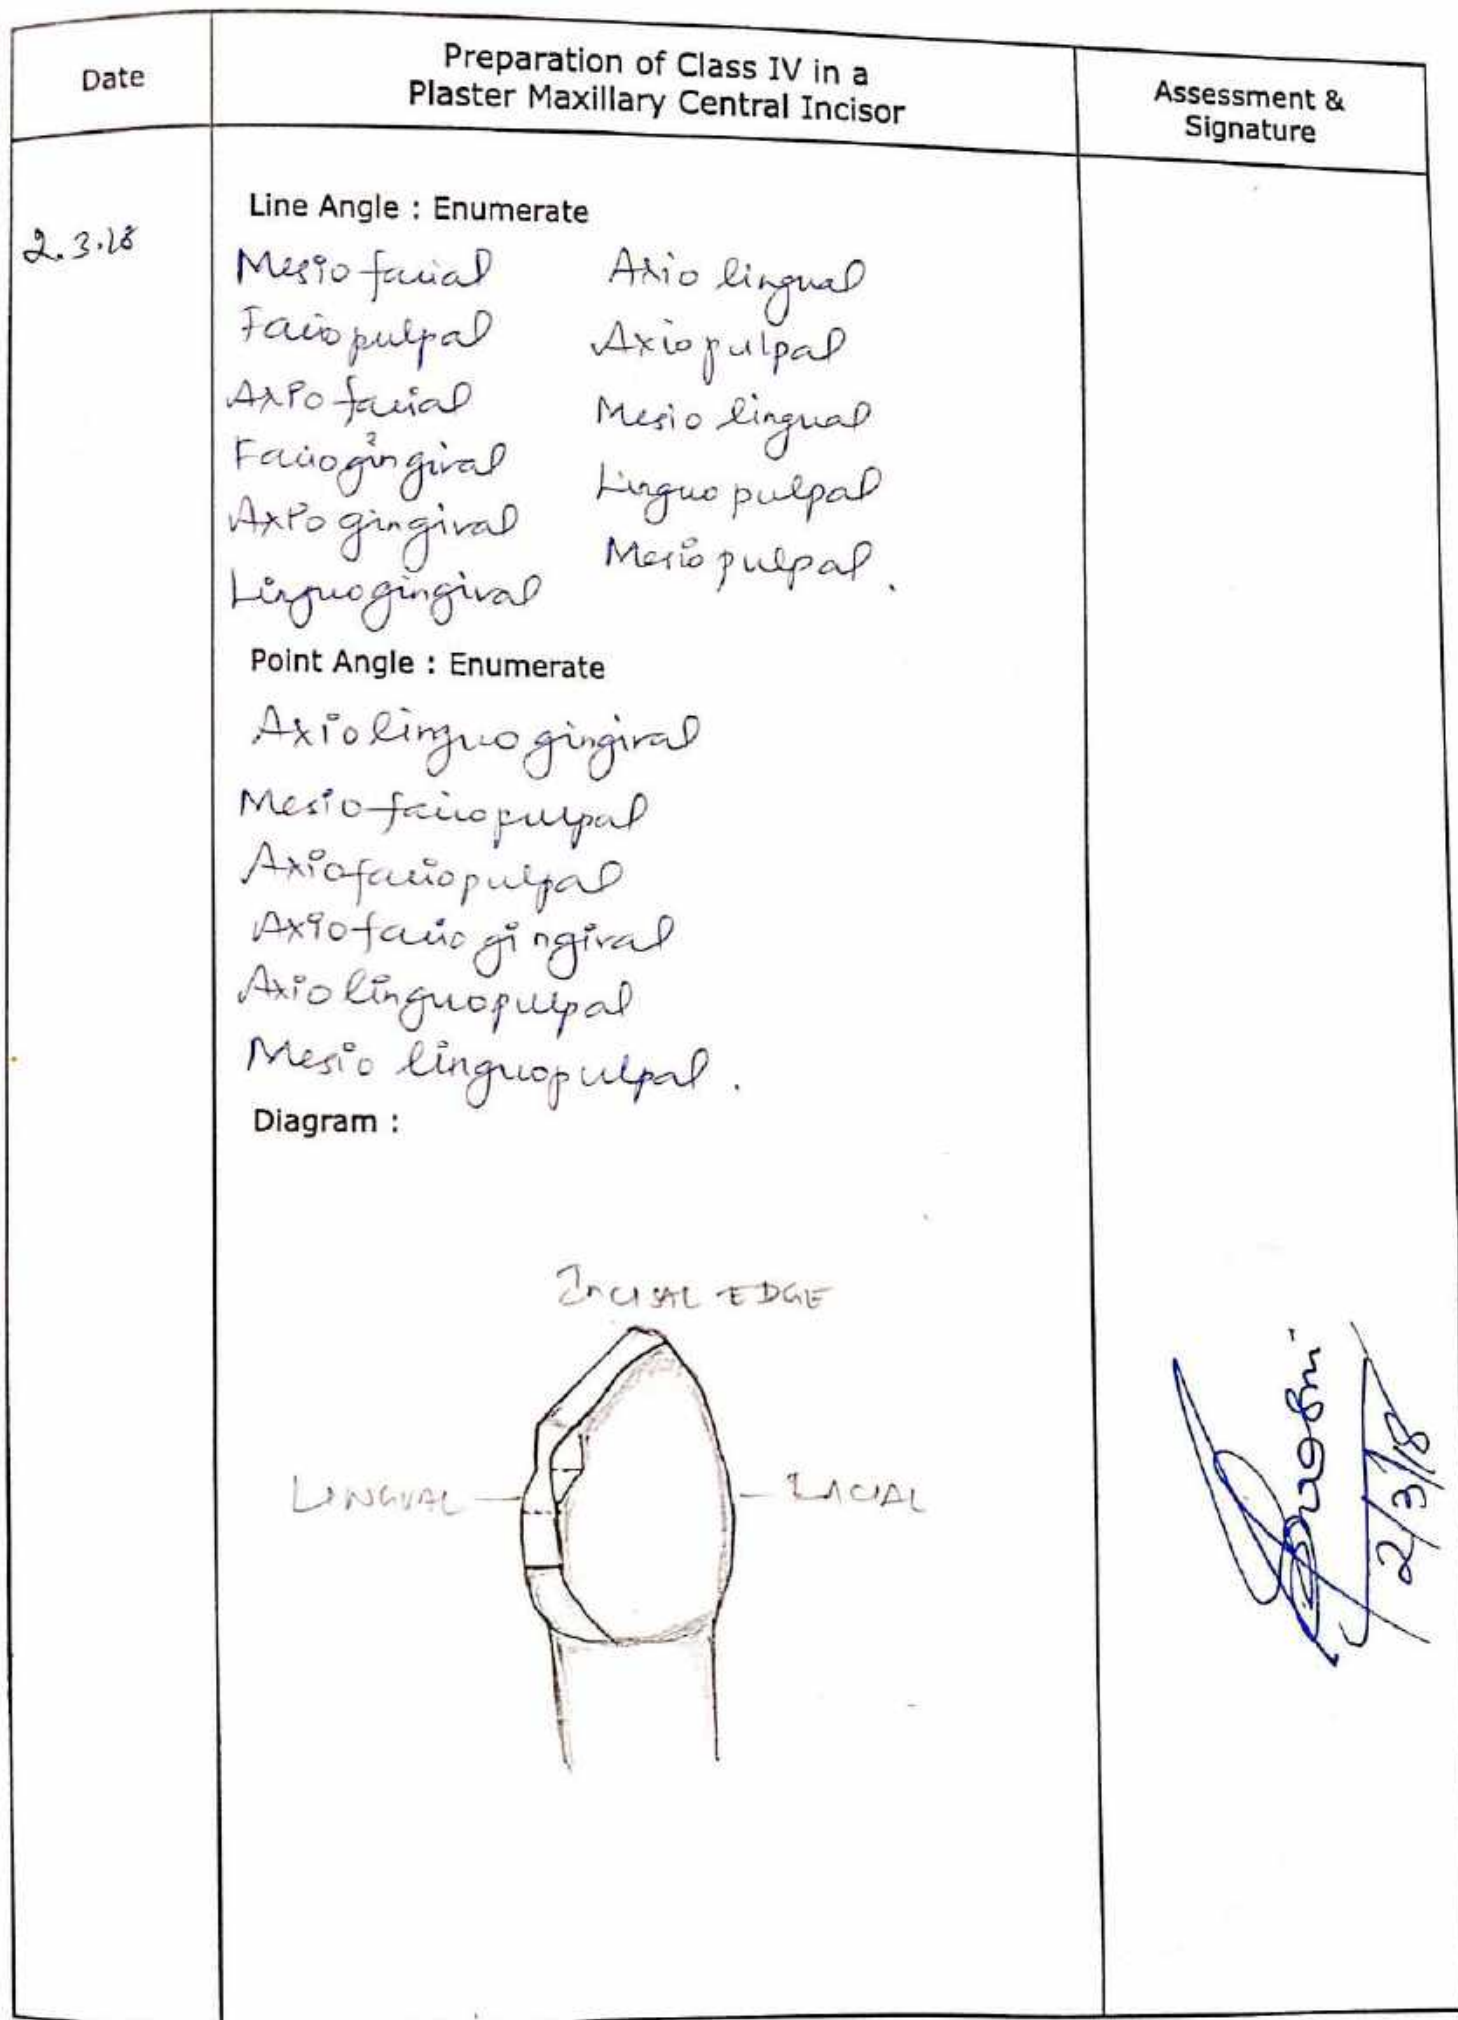 Date
Preparation of Class IV in a
Plaster Maxillary Central Incisor
Assessment &
Signature
2.3.18
Line Angle : Enumerate
Mesio facial
Facio pulpal
Axio facial
Facio gingival
Axio gingival
Linguo gingival
Axio lingual
Axio pulpal
Mesio lingual
Linguo pulpal
Mesio pulpal.
Point Angle : Enumerate
Axio linguo gingival
Mesio facio pulpal
Axio facio pulpal
Axio facio gingival
Axio linguo pulpal
Mesio linguo pulpal.
Diagram :
INCISAL EDGE
LINGUAL
FACIAL
2/3/18